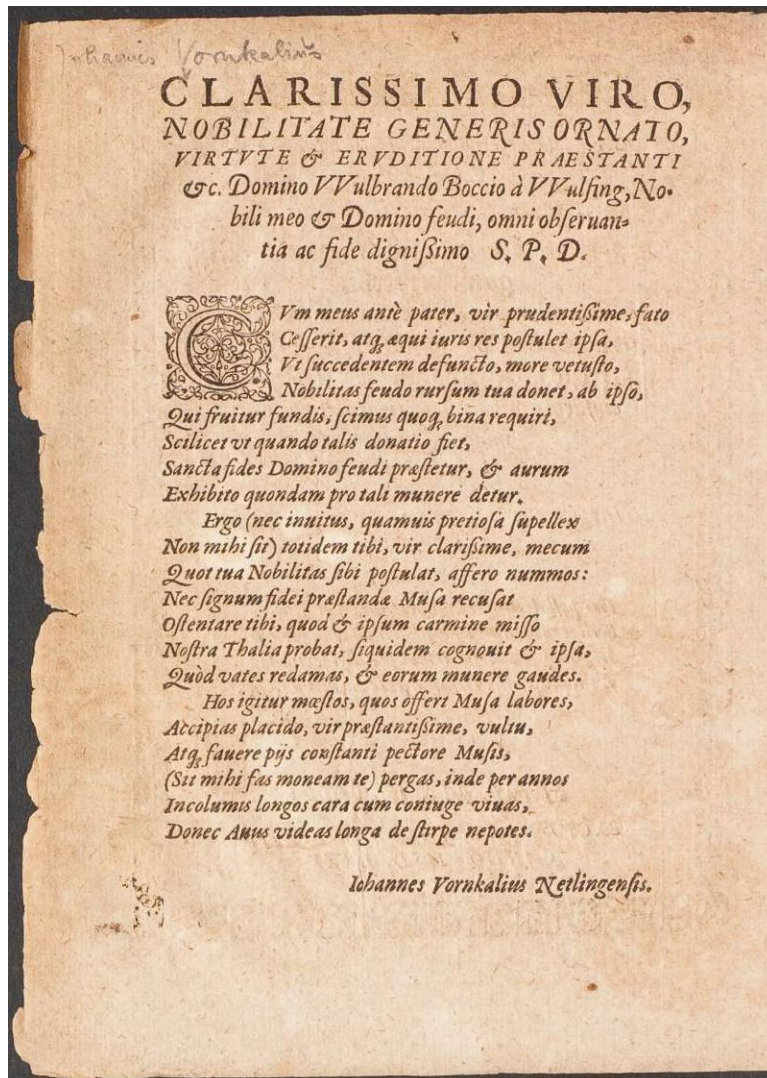 Johannis Vornkalius
CLARISSIMO VIRO,
NOBILITATE GENERIS ORNATO,
VIRTVTE & ERVDITIONE PRAESTANTI
&c. Domino VVulbrando Boccio à VVulfing, No-
bili meo & Domino feudi, omni obſeruan-
tia ac fide digniſsimo S. P. D.
CVm meus antè pater, vir prudentiſsime, fato
Ceſſerit, atq; æqui iuris res poſtulet ipſa,
Vt ſuccedentem defuncto, more vetuſto,
Nobilitas feudo rurſum tua donet, ab ipſo,
Qui fruitur fundis, ſcimus quoq; bina requiri,
Scilicet vt quando talis donatio fiet,
Sancta fides Domino feudi præſtetur, & aurum
Exhibito quondam pro tali munere detur.
Ergo (nec inuitus, quamuis pretioſa ſupellex
Non mihi ſit) totidem tibi, vir clariſsime, mecum
Quot tua Nobilitas ſibi poſtulat, affero nummos:
Nec ſignum fidei præſtandæ Muſa recuſat
Oſtentare tibi, quod & ipſum carmine miſſo
Noſtra Thalia probat, ſiquidem cognouit & ipſa,
Quòd vates redamas, & eorum munere gaudes.
Hos igitur mœſtos, quos offert Muſa labores,
Accipias placido, vir præſtantiſsime, vultu,
Atq; fauere pijs conſtanti pectore Muſis,
(Sit mihi fas moneam te) pergas, inde per annos
Incolumis longos cara cum coniuge viuas,
Donec Auus videas longa de ſtirpe nepotes.
Iohannes Vornkalius Netlingenſis.